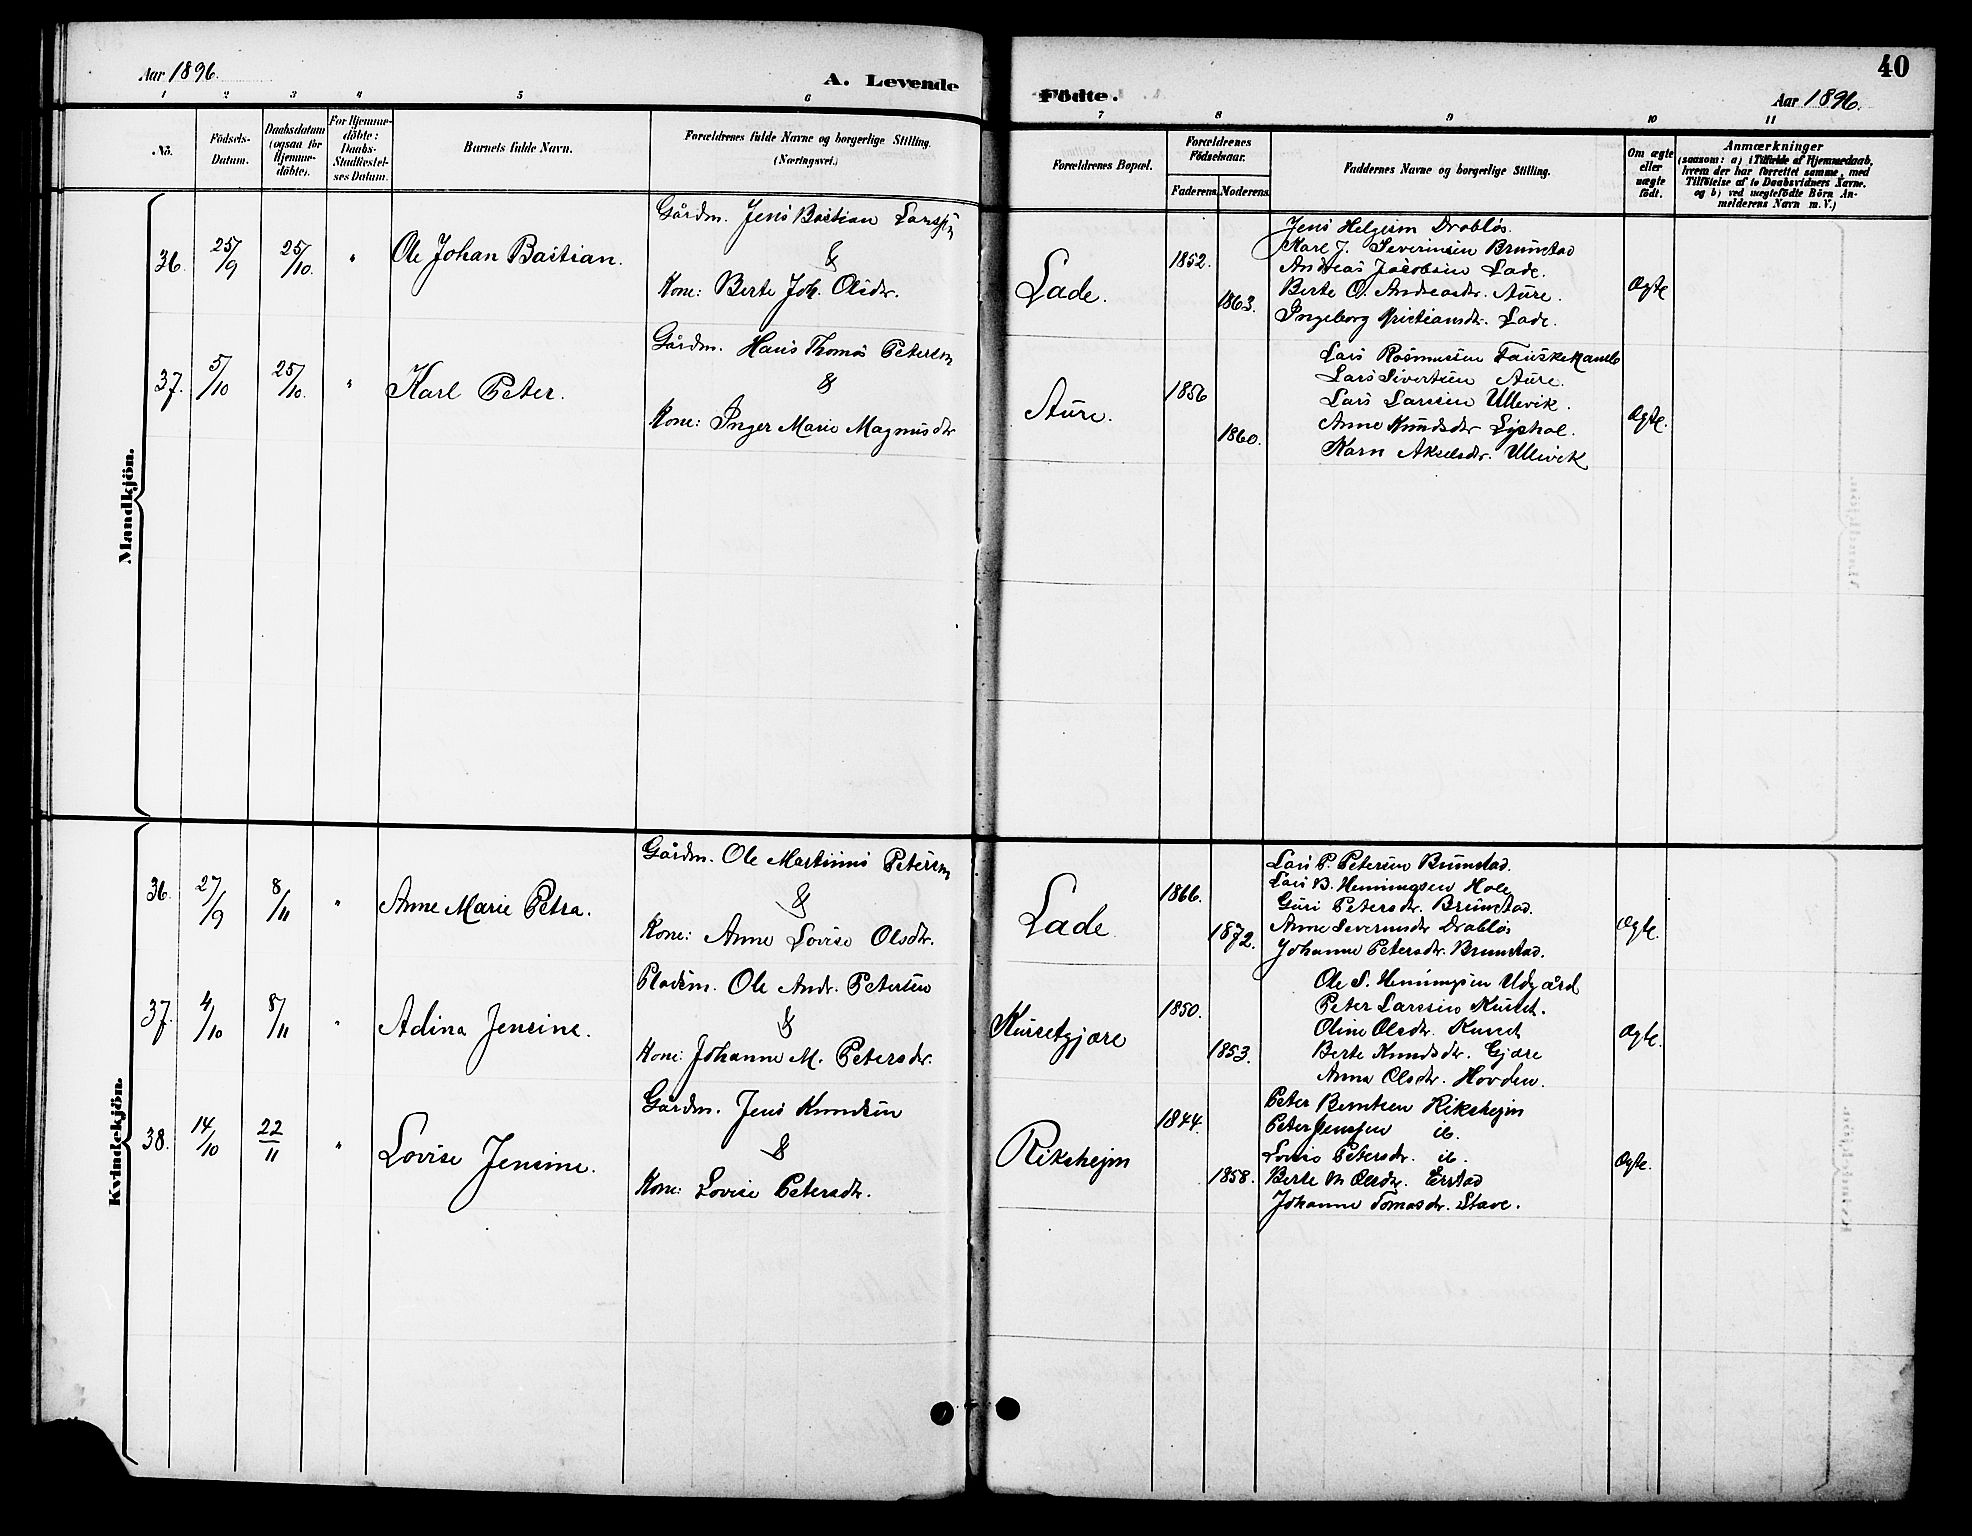 Aar 1896.
A. Levende
Födte.
40
Aar 1896.
1 2 3 4 5 6
7 8 9 10 11
No.
Födsels-Datum.
Daabsdatum (ogsaa for Hjemme-döbte).
For Hjemme-döbte: Daabs-Stadfæstel-ses Datum.
Barnets fulde Navn.
Forældrenes fulde Navne og borgerlige Stilling.
(Næringsvei.)
Forældrenes Bopæl.
Forældrenes Födselsaar.
Faderens. Moderens.
Faddernes Navne og borgerlige Stilling.
Om ægte eller uægte födt.
Anmærkninger
(saasom: a) i Tilfælde af Hjemmedaab,
hvem der har forrettet samme, med
Tilföielse af to Daabsvidners Navne.
og b) ved uegtefödte Börn An-
melderens Navn m. V.)
Mandkjön.
36. 25/9 25/10. " Ole Johan Bastian.
Gårdm. Jens Bastian Larssen
&
Kone: Berte Joh. Olsdtr.
Lade.
1852.
1863.
Jens Helgesen Drabløs.
Karl J. Severinsen Brunstad
Andreas Jacobsen Lade.
Berte O. Andreasdtr. Aure.
Ingeborg Kristiansdtr. Lade.
Ægte
37. 5/10 25/10. " Karl Peter.
Gårdm. Hans Thomas Petersen
&
Kone: Inger Marie Magnusdtr
Aure.
1856
1860.
Lars Rasmussen
Lars Sivertsen Aure.
Lars Larssen Ullevik.
Anne Knudsdtr Lyshol.
Karn Akselsdtr. Ullevik
Ægte.
Kvindekjön.
36. 27/9 8/11 " Anne Marie Petra.
Gårdm. Ole Martinus Petersen
&
Kone: Anne Lovise Olsdtr.
Lade
1866.
1872.
Lars P. Petersen Brunstad.
Lars B. Henningsen Hole
Guri Petersdtr. Brunstad.
Anne Severinsdtr Drabløs
Johanne Petersdtr. Brunstad.
Ægte.
37. 4/10 8/11 " Adina Jensine.
Pladsm. Ole Andr. Petersen
&
Kone: Johanne M. Petersdtr.
Kursetgjære
1850.
1853.
Ole S. Henningsen Udgård
Peter Larssen Kurset.
Oline Olsdtr. Kurset
Berte Knudsdtr. Gjære
Anna Olsdtr. Hovden.
Ægte.
38. 14/10 22/11 " Lovise Jensine.
Gårdm. Jens Knudsen
&
Kone: Lovise Petersdtr.
Riksheim
1844.
1858.
Peter Berntsen Riksheim
Peter Jenssen ib.
Lovise Petersdtr. ib.
Berte M Olsdtr. Erstad
Johanne Tomasdtr. Stave.
Ægte.